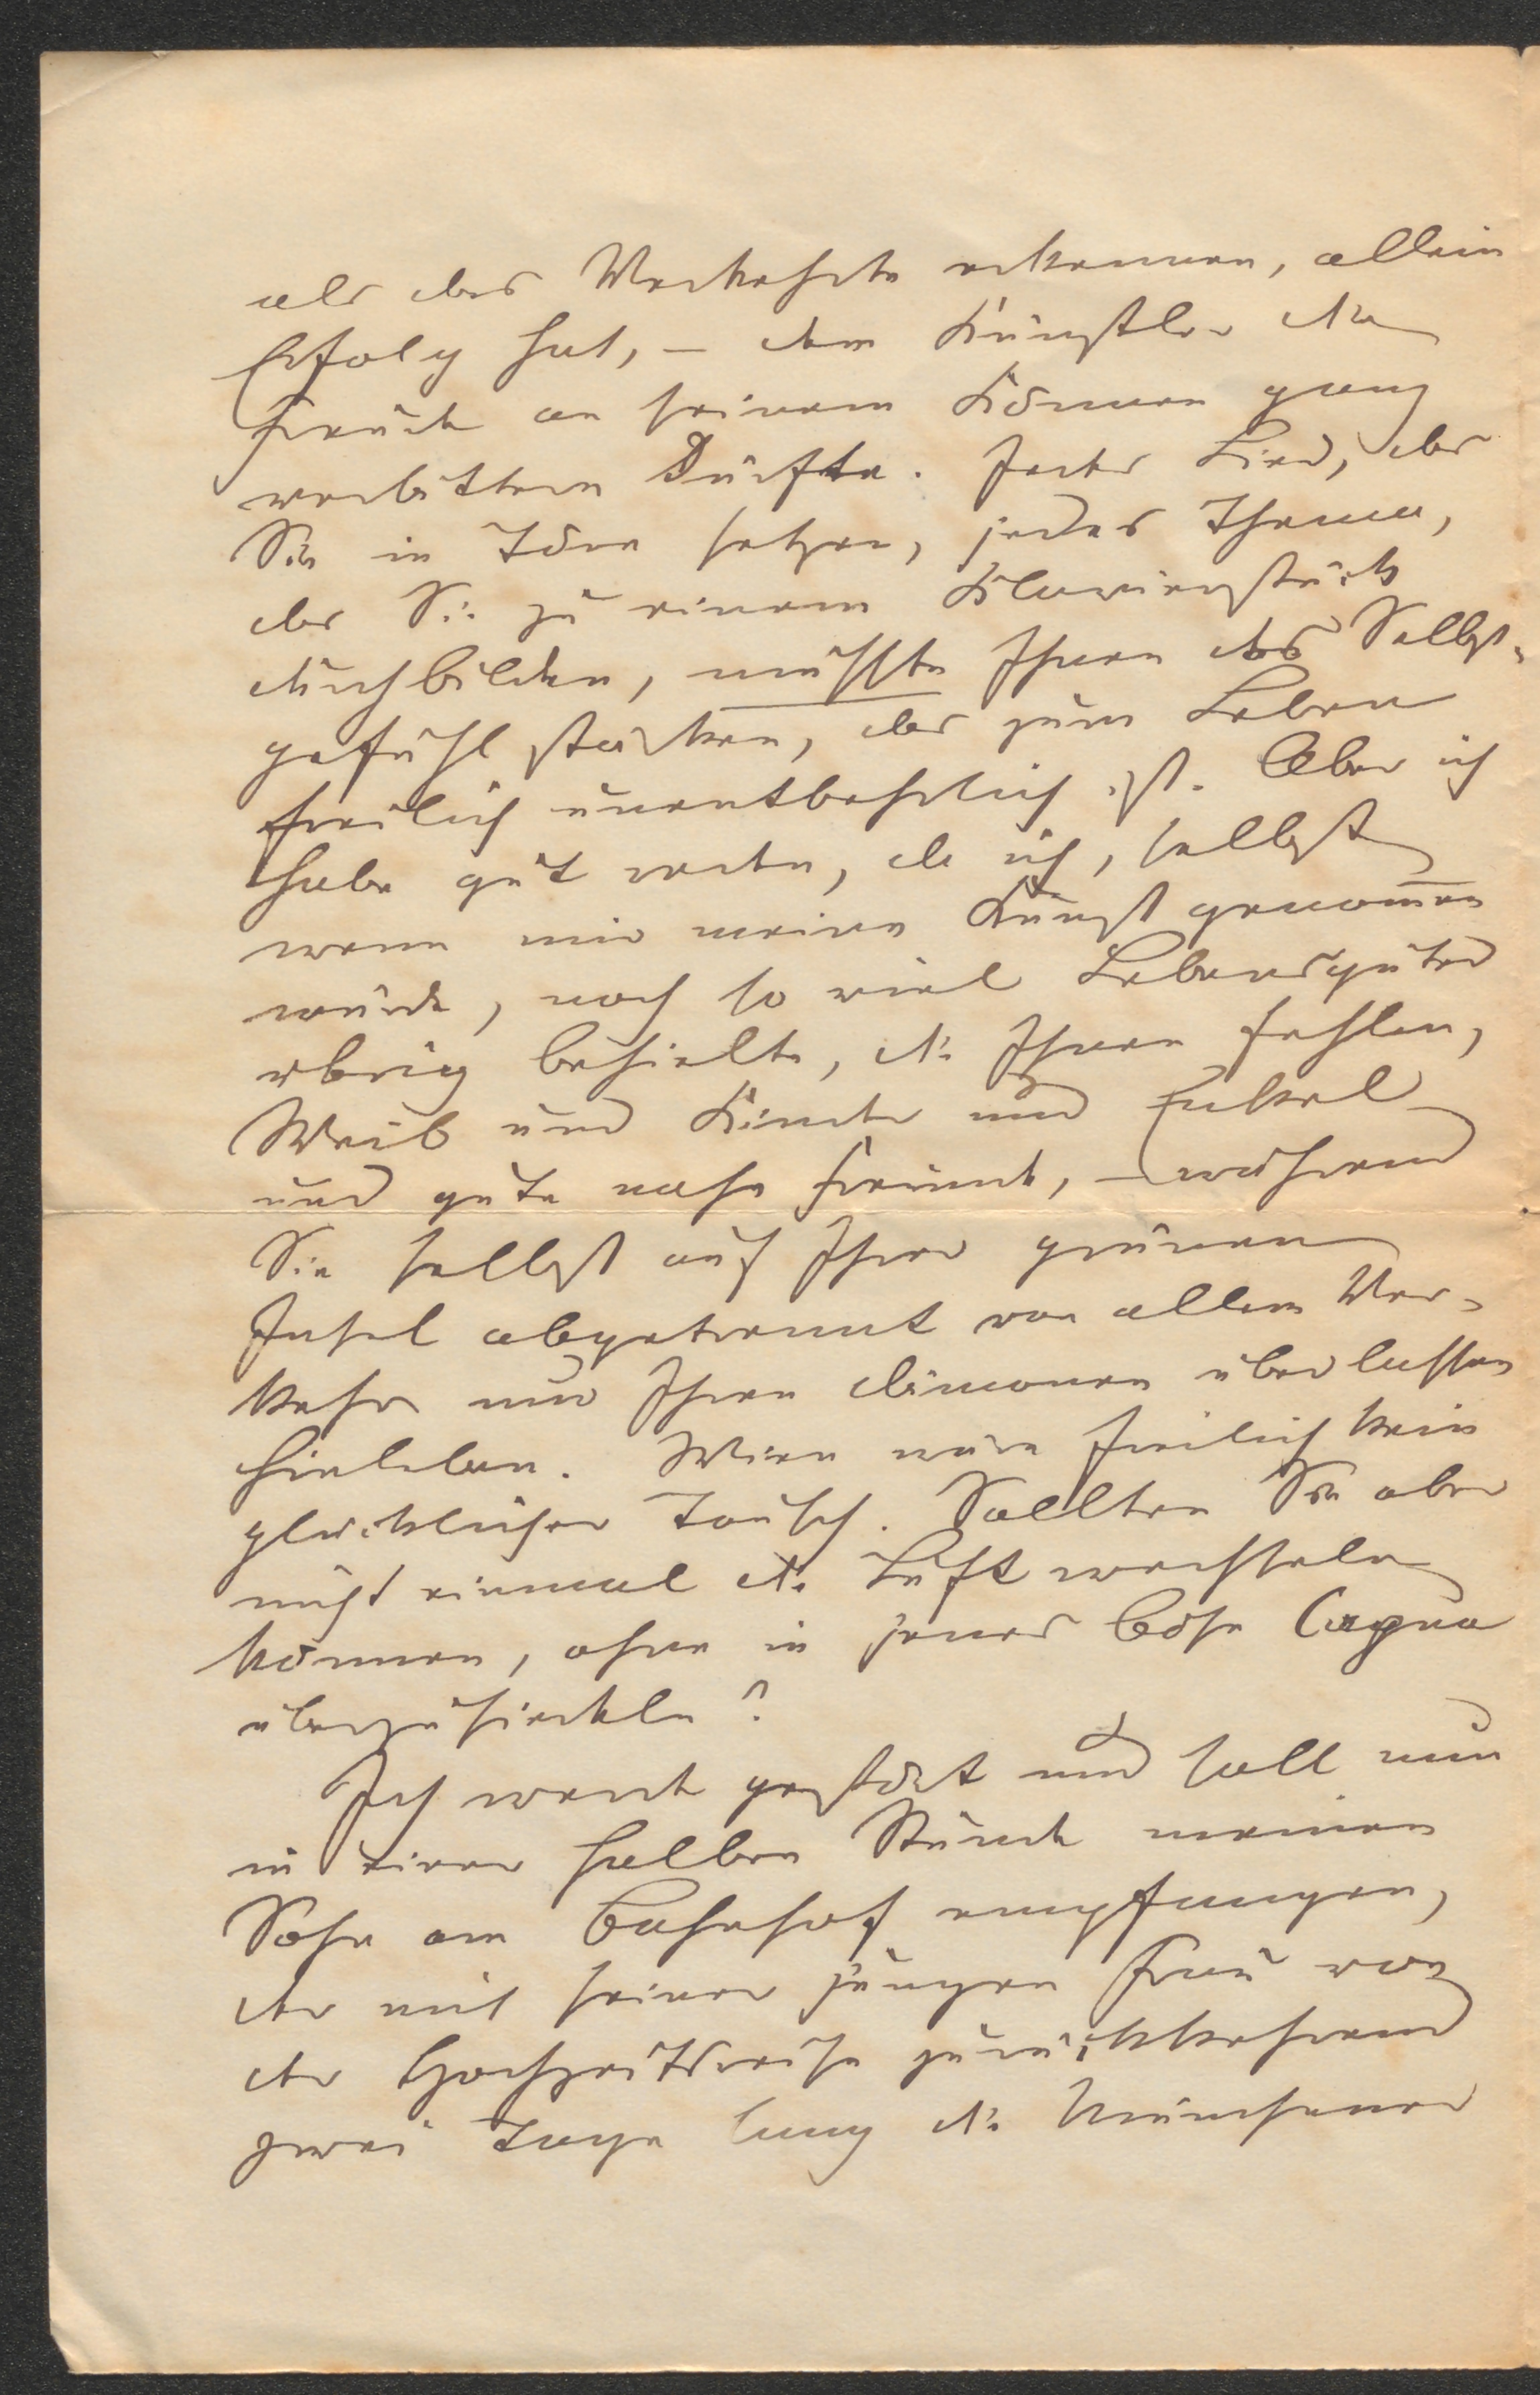 als das Verkehrte erkennen, allein
Erfolg hat, – dem Künstler die
Freude an seinem Können ganz
verbittern dürfte. Jedes Lied, das
Sie in Töne setzen, jedes Thema,
das Sie zu einem Klavierstück
durchbilden, müsste Ihnen das Selbst-
gefühl stärken, das zum Leben
freilich unentbehrlich ist. Aber ich
habe gut reden, da ich, selbst
wenn mir meine Kunst genom̅en
würde, noch so viel Lebensgüter
übrig behielte, die Ihnen fehlen,
Weib und Kinder und Enkel
und gute nahe Freunde, – während
Sie selbst auf Ihrer grünen
Insel abgetrennt von allem Ver-
kehr nur Ihren Dämonen überlassen
hinleben. Wien wäre freilich kein
glücklicher Tausch. Sollten Sie aber
nicht einmal die Luft wechseln
können, ohne in jenes böse
überzusiedeln?
Ich werde gestört und soll nun
in einer halben Stunde meinen
Sohn am Bahnhof empfangen,
der mit seiner jungen Frau von
der Hochzeitsreise zurückkehrend
zwei Tage lang die Münchener